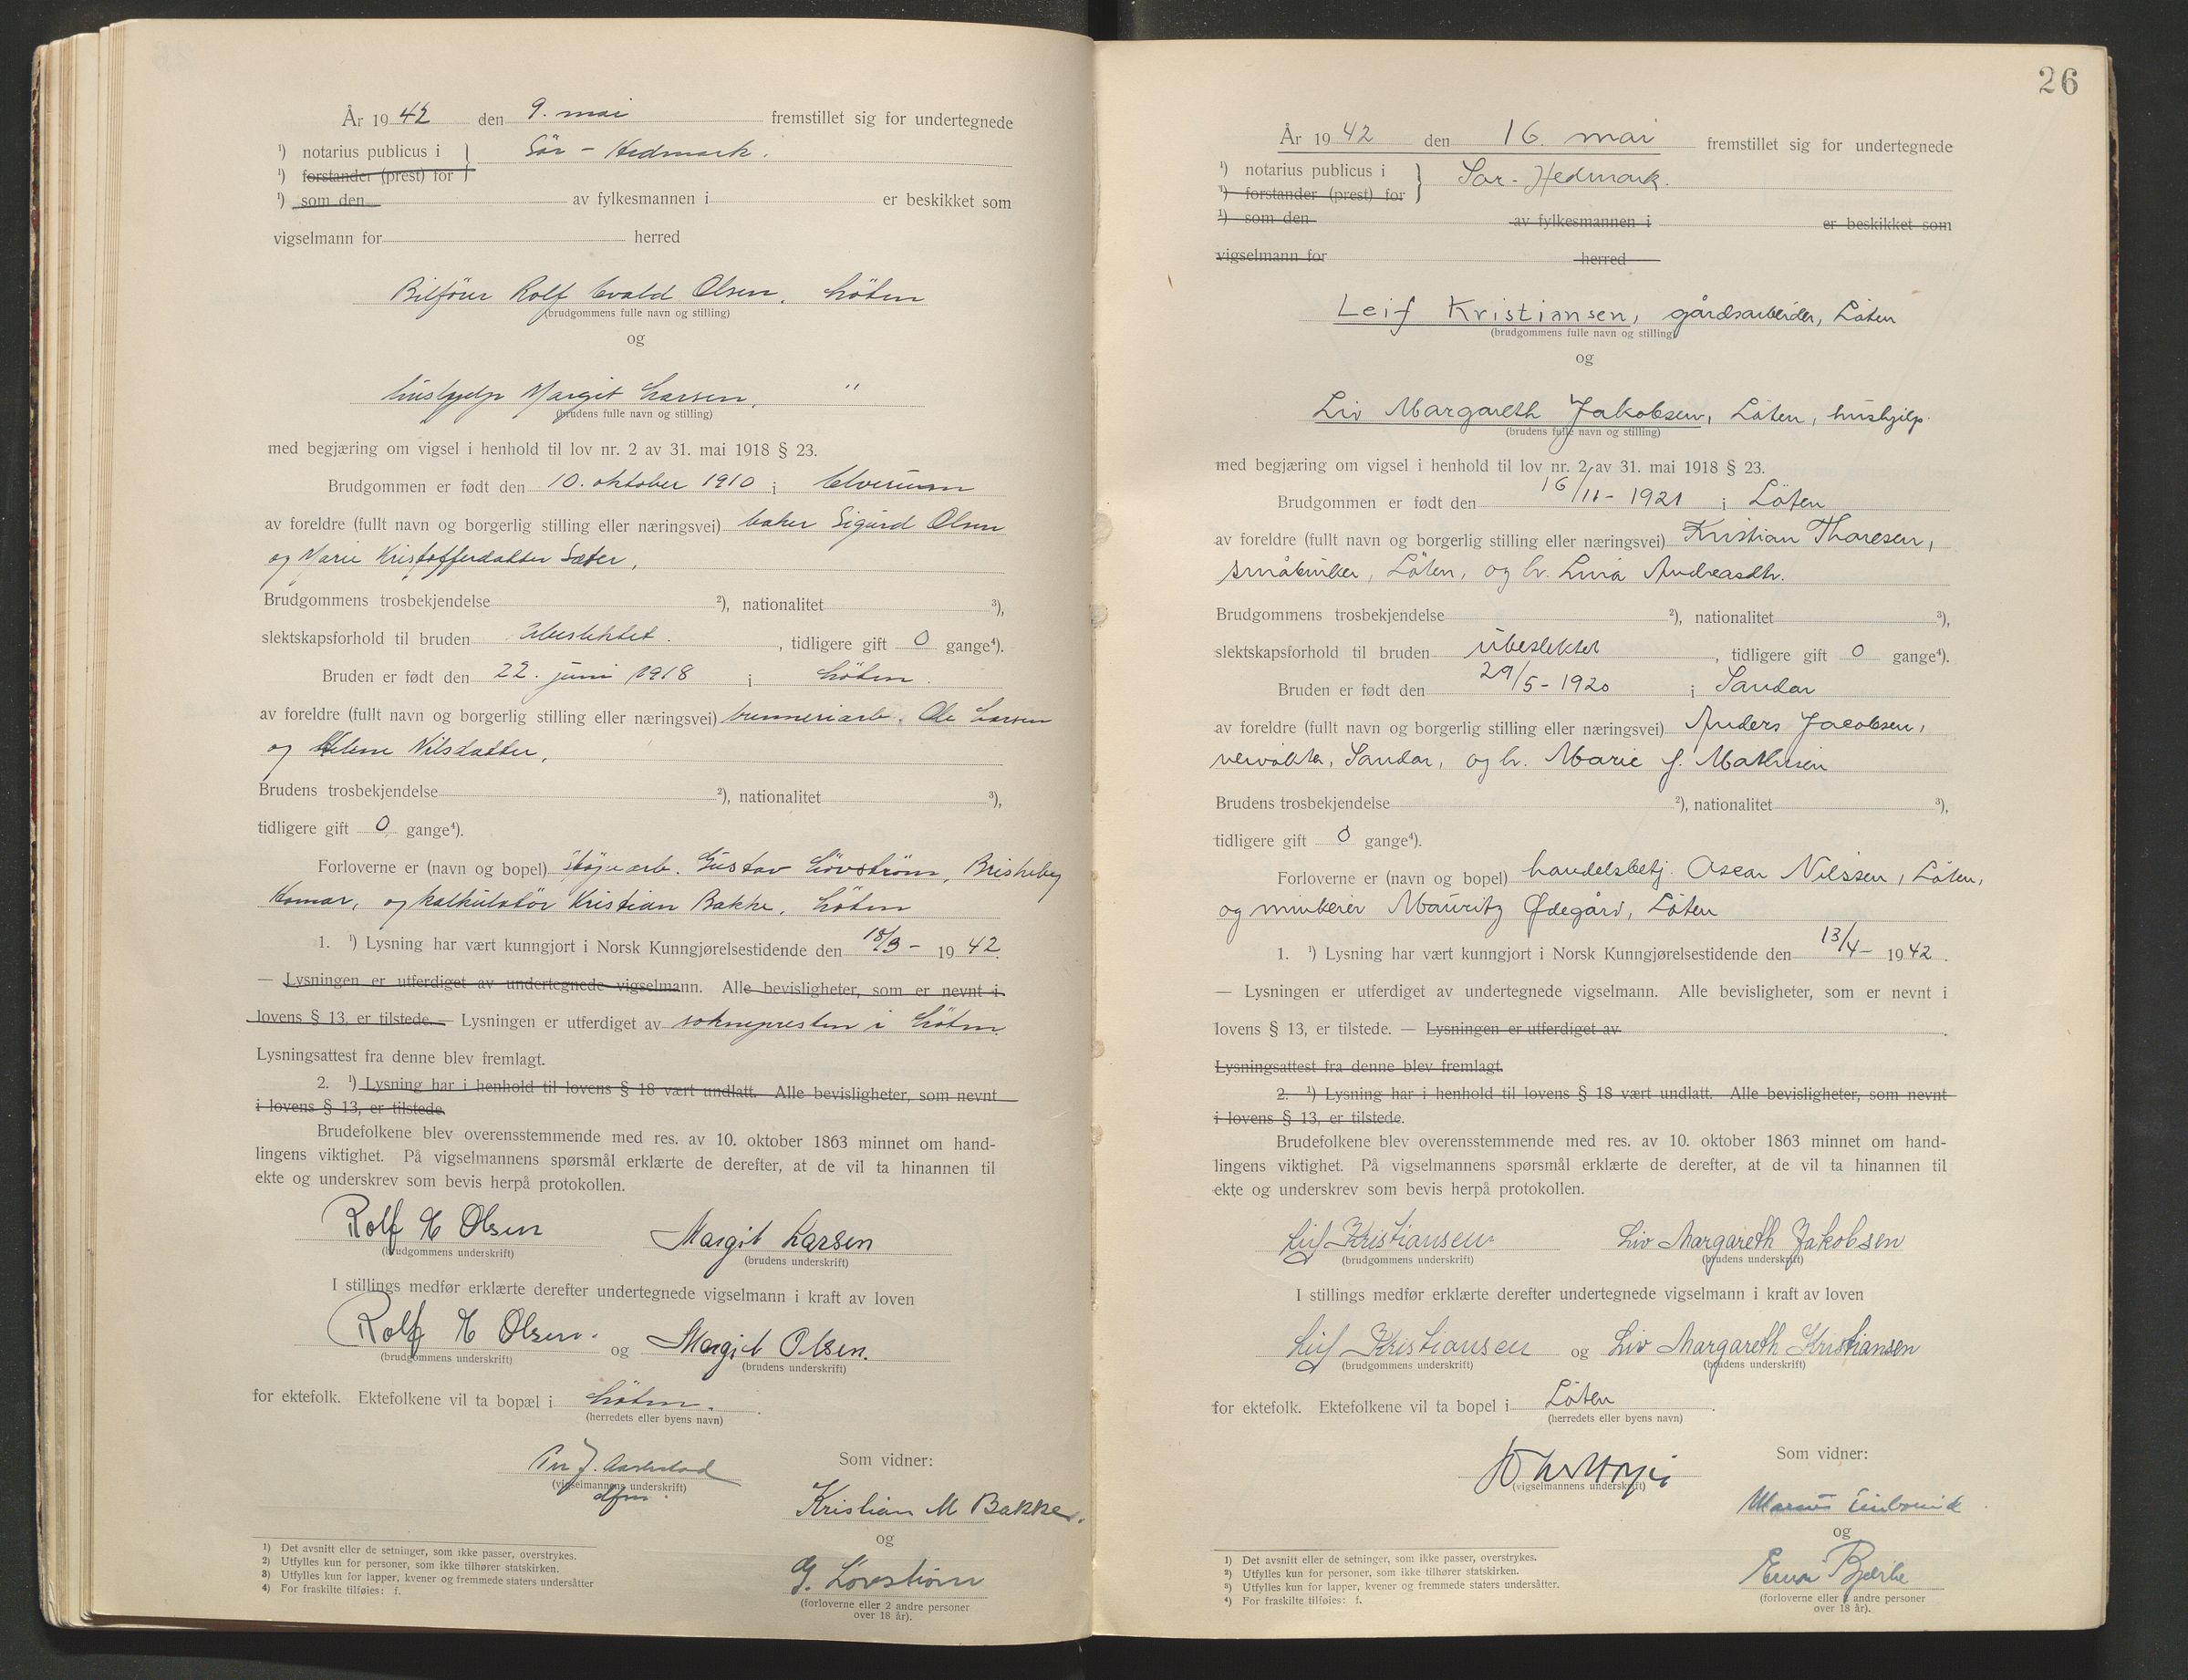 År 1942 den 9. mai fremstillet sig for undertegnede
¹) notarius publicus i } Sör - Hedmark.
¹) forstander (prest) for
¹) som den av fylkesmannen i er beskikket som
vigselmann for herred
Bilförer Rolf Evald Olsen, Löten
(brudgommens fulle navn og stilling)
og
hushjelp Margit Larsen, "
(brudens fulle navn og stilling)
med begjæring om vigsel i henhold til lov nr. 2 av 31. mai 1918 § 23.
Brudgommen er født den 10. oktober 1910 i Elverum
av foreldre (fullt navn og borgerlig stilling eller næringsvei) baker Sigurd Olsen
og Marie Kristofferdatter Sæter,
Brudgommens trosbekjendelse ²), nationalitet ³),
slektskapsforhold til bruden Ubeslektet. , tidligere gift 0 gange⁴).
Bruden er født den 22. juni 1918 i Löten.
av foreldre (fullt navn og borgerlig stilling eller næringsvei) brenneriarb. Ole Larsen
og Helene Nilsdatter,
Brudens trosbekjendelse ²), nationalitet ³),
tidligere gift 0 gange⁴).
Forloverne er (navn og bopel) Gustav Lövström, Briskeby
Hamar, og kalkulatör Kristian Bakke, Löten
1. ¹) Lysning har vært kunngjort i Norsk Kunngjørelsestidende den 18/3 - 1942.
— Lysningen er utferdiget av undertegnede vigselmann. Alle bevisligheter, som er nevnt i
lovens § 13, er tilstede. — Lysningen er utferdiget av soknepresten i Löten.
Lysningsattest fra denne blev fremlagt.
2. ¹) Lysning har i henhold til lovens § 18 vært undlatt. Alle bevisligheter, som nevnt
i lovens § 13, er tilstede.
Brudefolkene blev overensstemmende med res. av 10. oktober 1863 minnet om hand-
lingens viktighet. På vigselmannens spørsmål erklærte de derefter, at de vil ta hinannen til
ekte og underskrev som bevis herpå protokollen.
Rolf E Olsen Margit Larsen
(brudgommens underskrift) (brudens underskrift)
I stillings medfør erklærte derefter undertegnede vigselmann i kraft av loven
Rolf E Olsen. og Margit Olsen.
(brudgommens underskrift) (brudens underskrift)
for ektefolk. Ektefolkene vil ta bopæl i Löten.
(herredets eller byens navn)
Som vidner:
(vigselmannens underskrift)
dfm.
Kristian M Bakke.
og
G. Lövström
(forloverne eller 2 andre personer
over 18 år).
¹) Det avsnitt eller de setninger, som ikke passer, overstrykes.
²) Utfylles kun for personer, som ikke tilhører statskirken.
³) Utfylles kun for lapper, kvener og fremmede staters undersåtter
⁴) For fraskilte tilføies: f.
26
År 1942 den 16. mai fremstillet sig for undertegnede
¹) notarius publicus i } Sør - Hedmark.
¹) forstander (prest) for
¹) som den av fylkesmannen i er beskikket som
vigselmann for herred
Leif Kristiansen, gårdsarbeider, Löten
(brudgommens fulle navn og stilling)
og
Liv Margareth Jakobsen, Löten, hushjelp.
(brudens fulle navn og stilling)
med begjæring om vigsel i henhold til lov nr. 2 av 31. mai 1918 § 23.
Brudgommen er født den 16/11 - 1921 i Löten
av foreldre (fullt navn og borgerlig stilling eller næringsvei) Kristian Thoresen,
småbruker, Löten, og h. Lina Andreasdtr.
Brudgommens trosbekjendelse ²), nationalitet ³),
slektskapsforhold til bruden ubeslektet , tidligere gift 0 gange⁴).
Bruden er født den 29/5 - 1920 i Sandar
av foreldre (fullt navn og borgerlig stilling eller næringsvei) Anders Jacobsen,
Sandar, og h. Marie f. Mathisen
Brudens trosbekjendelse ²), nationalitet ³),
tidligere gift 0 gange⁴).
Forloverne er (navn og bopel) handelsbetj. Oscar Nilssen, Löten,
og Mauritz Ødegård, Löten
1. ¹) Lysning har vært kunngjort i Norsk Kunngjørelsestidende den 13/4 - 1942.
— Lysningen er utferdiget av undertegnede vigselmann. Alle bevisligheter, som er nevnt i
lovens § 13, er tilstede. — Lysningen er utferdiget av .
Lysningsattest fra denne blev fremlagt.
2. ¹) Lysning har i henhold til lovens § 18 vært undlatt. Alle bevisligheter, som nevnt
i lovens § 13, er tilstede.
Brudefolkene blev overensstemmende med res. av 10. oktober 1863 minnet om hand-
lingens viktighet. På vigselmannens spørsmål erklærte de derefter, at de vil ta hinannen til
ekte og underskrev som bevis herpå protokollen.
Leif Kristiansen. Liv Margareth Jakobsen
(brudgommens underskrift) (brudens underskrift)
I stillings medfør erklærte derefter undertegnede vigselmann i kraft av loven
Leif Kristiansen og Liv Margareth Kristiansen
(brudgommens underskrift) (brudens underskrift)
for ektefolk. Ektefolkene vil ta bopel i Löten.
(herredets eller byens navn)
Som vidner:
(vigselmannens underskrift)
og
Bjerke
(forloverne eller 2 andre personer
over 18 år).
¹) Det avsnitt eller de setninger, som ikke passer, overstrykes.
²) Utfylles kun for personer, som ikke tilhører statskirken.
³) Utfylles kun for lapper, kvener og fremmede staters undersåtter.
⁴) For fraskilte tilføies: f.